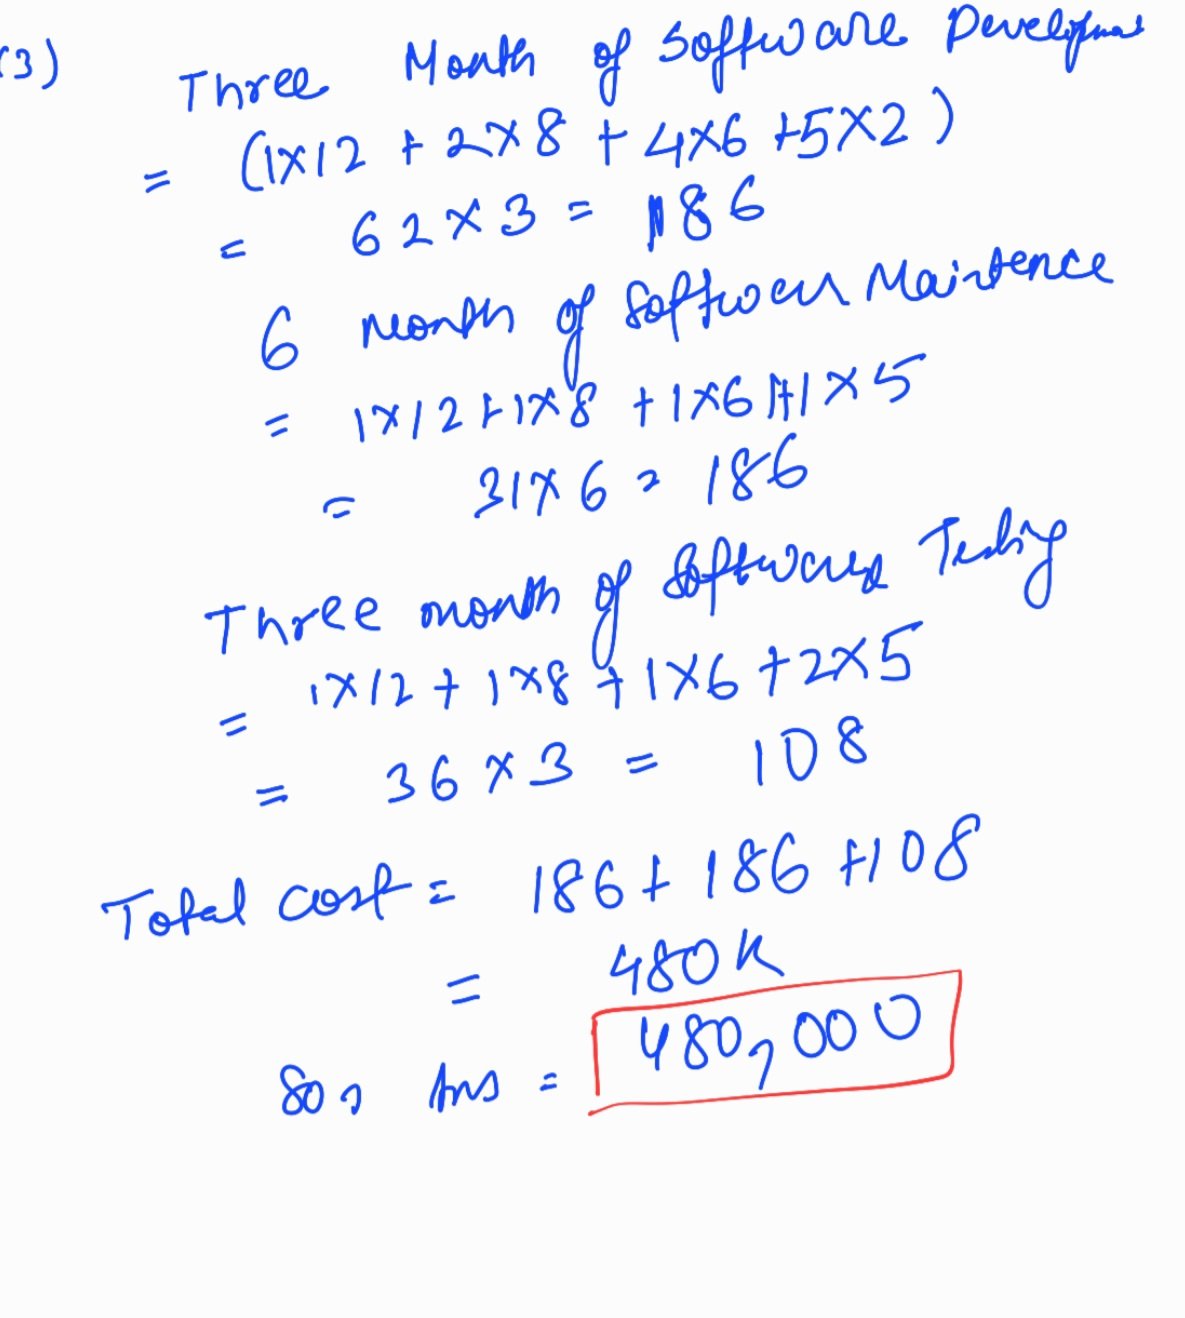 (3) Three Month of Software Development
= (1×12 + 2×8 + 4×6 +5×2)
= 62×3 = 186
6 Month of Software Maintence
= 1×12+1×8 +1×6+1×5
= 31×6 = 186
Three month of Software Testing
= 1×12 + 1×8 + 1×6 +2×5
= 36 ×3 = 108
Total cost = 186 + 186 +108
= 480K
So, Ans = 480,000